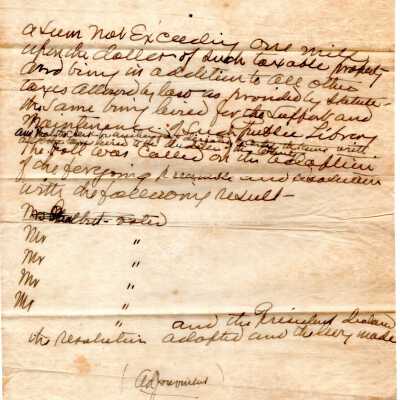 a sum not Exceeding one mill
upon the dollar of such taxable property
and being in addition to all other
taxes allowed by law as provided by Statute -
the same being levied for the support and
maintenance of public Library
The roll was called on the adoption
of the foregoing Preamble and resolution
with the following result -
Mr voted
Mr "
Mr "
Mr "
Mr "
" and the President declared
the resolution adopted and the levy made
(Adjournment)